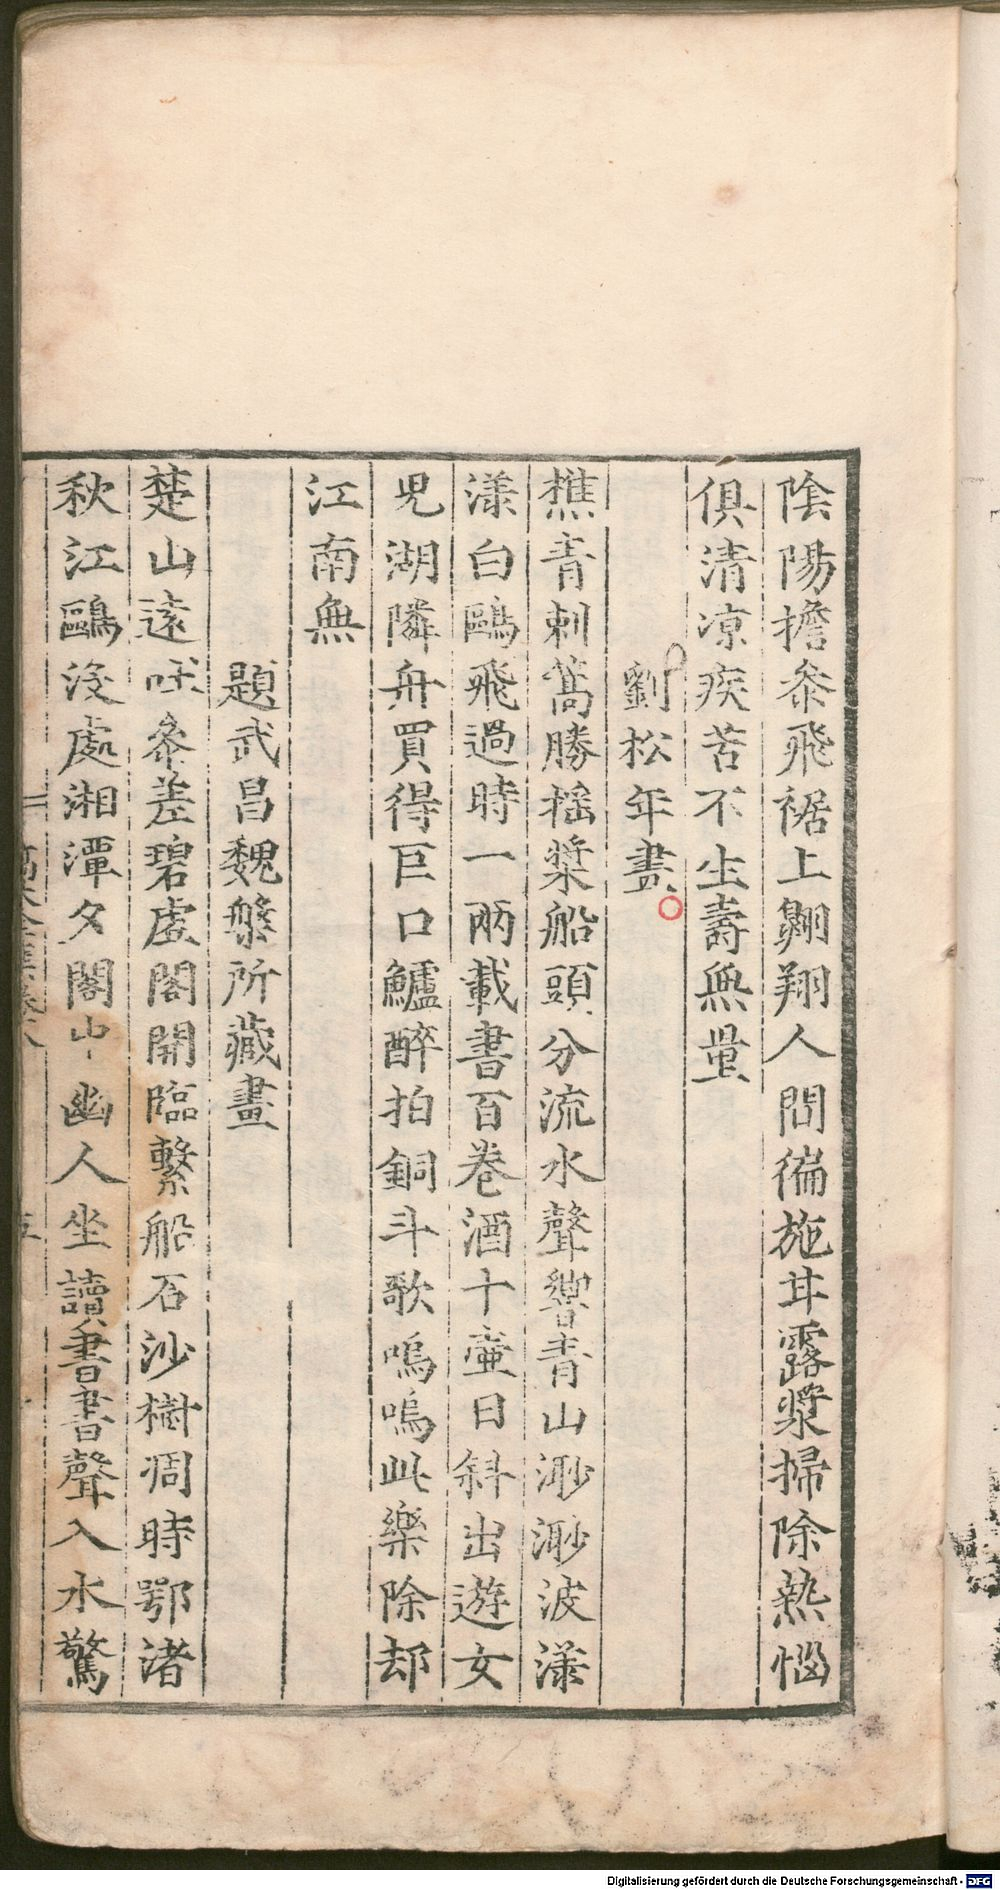 陰陽擔桼飛裾上翺翔人間徧施甘露漿掃除熱惱
俱清凉疾苦不生壽無量
劉松年畫
樵青刺篙勝揺槳船頭分流水聲響青山渺渺波漾
漾白鷗飛過時一兩載書百卷酒十壷日斜出遊女
兒湖隣舟買得巨口鱸醉拍銅斗歌嗚嗚此樂除却
江南無
題武昌魏槃所藏畫
楚山遠吠叅差碧處閣開臨繫船石沙樹凋時鄂渚
秋江鷗没處湘潭夕閣中幽人坐讀書書聲入水驚
高太全集卷八
五
Digitalisierung gefördert durch die Deutsche Forschungsgemeinschaft - DFG